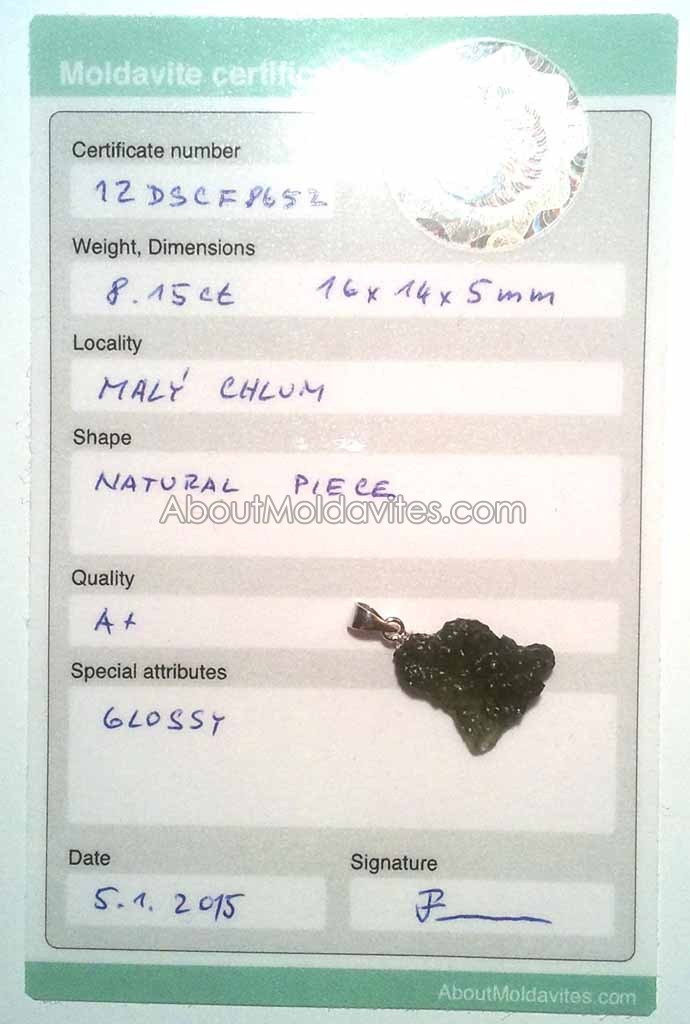 Moldavite certific
Certificate number
12DSCF8652
Weight, Dimensions
8.15ct 16x14x5mm
Locality
MALÝ CHLUM
Shape
NATURAL PIECE
AboutMoldavites.com
Quality
A+
Special attributes
GLOSSY
Date Signature
5.1.2015
AboutMoldavites.com